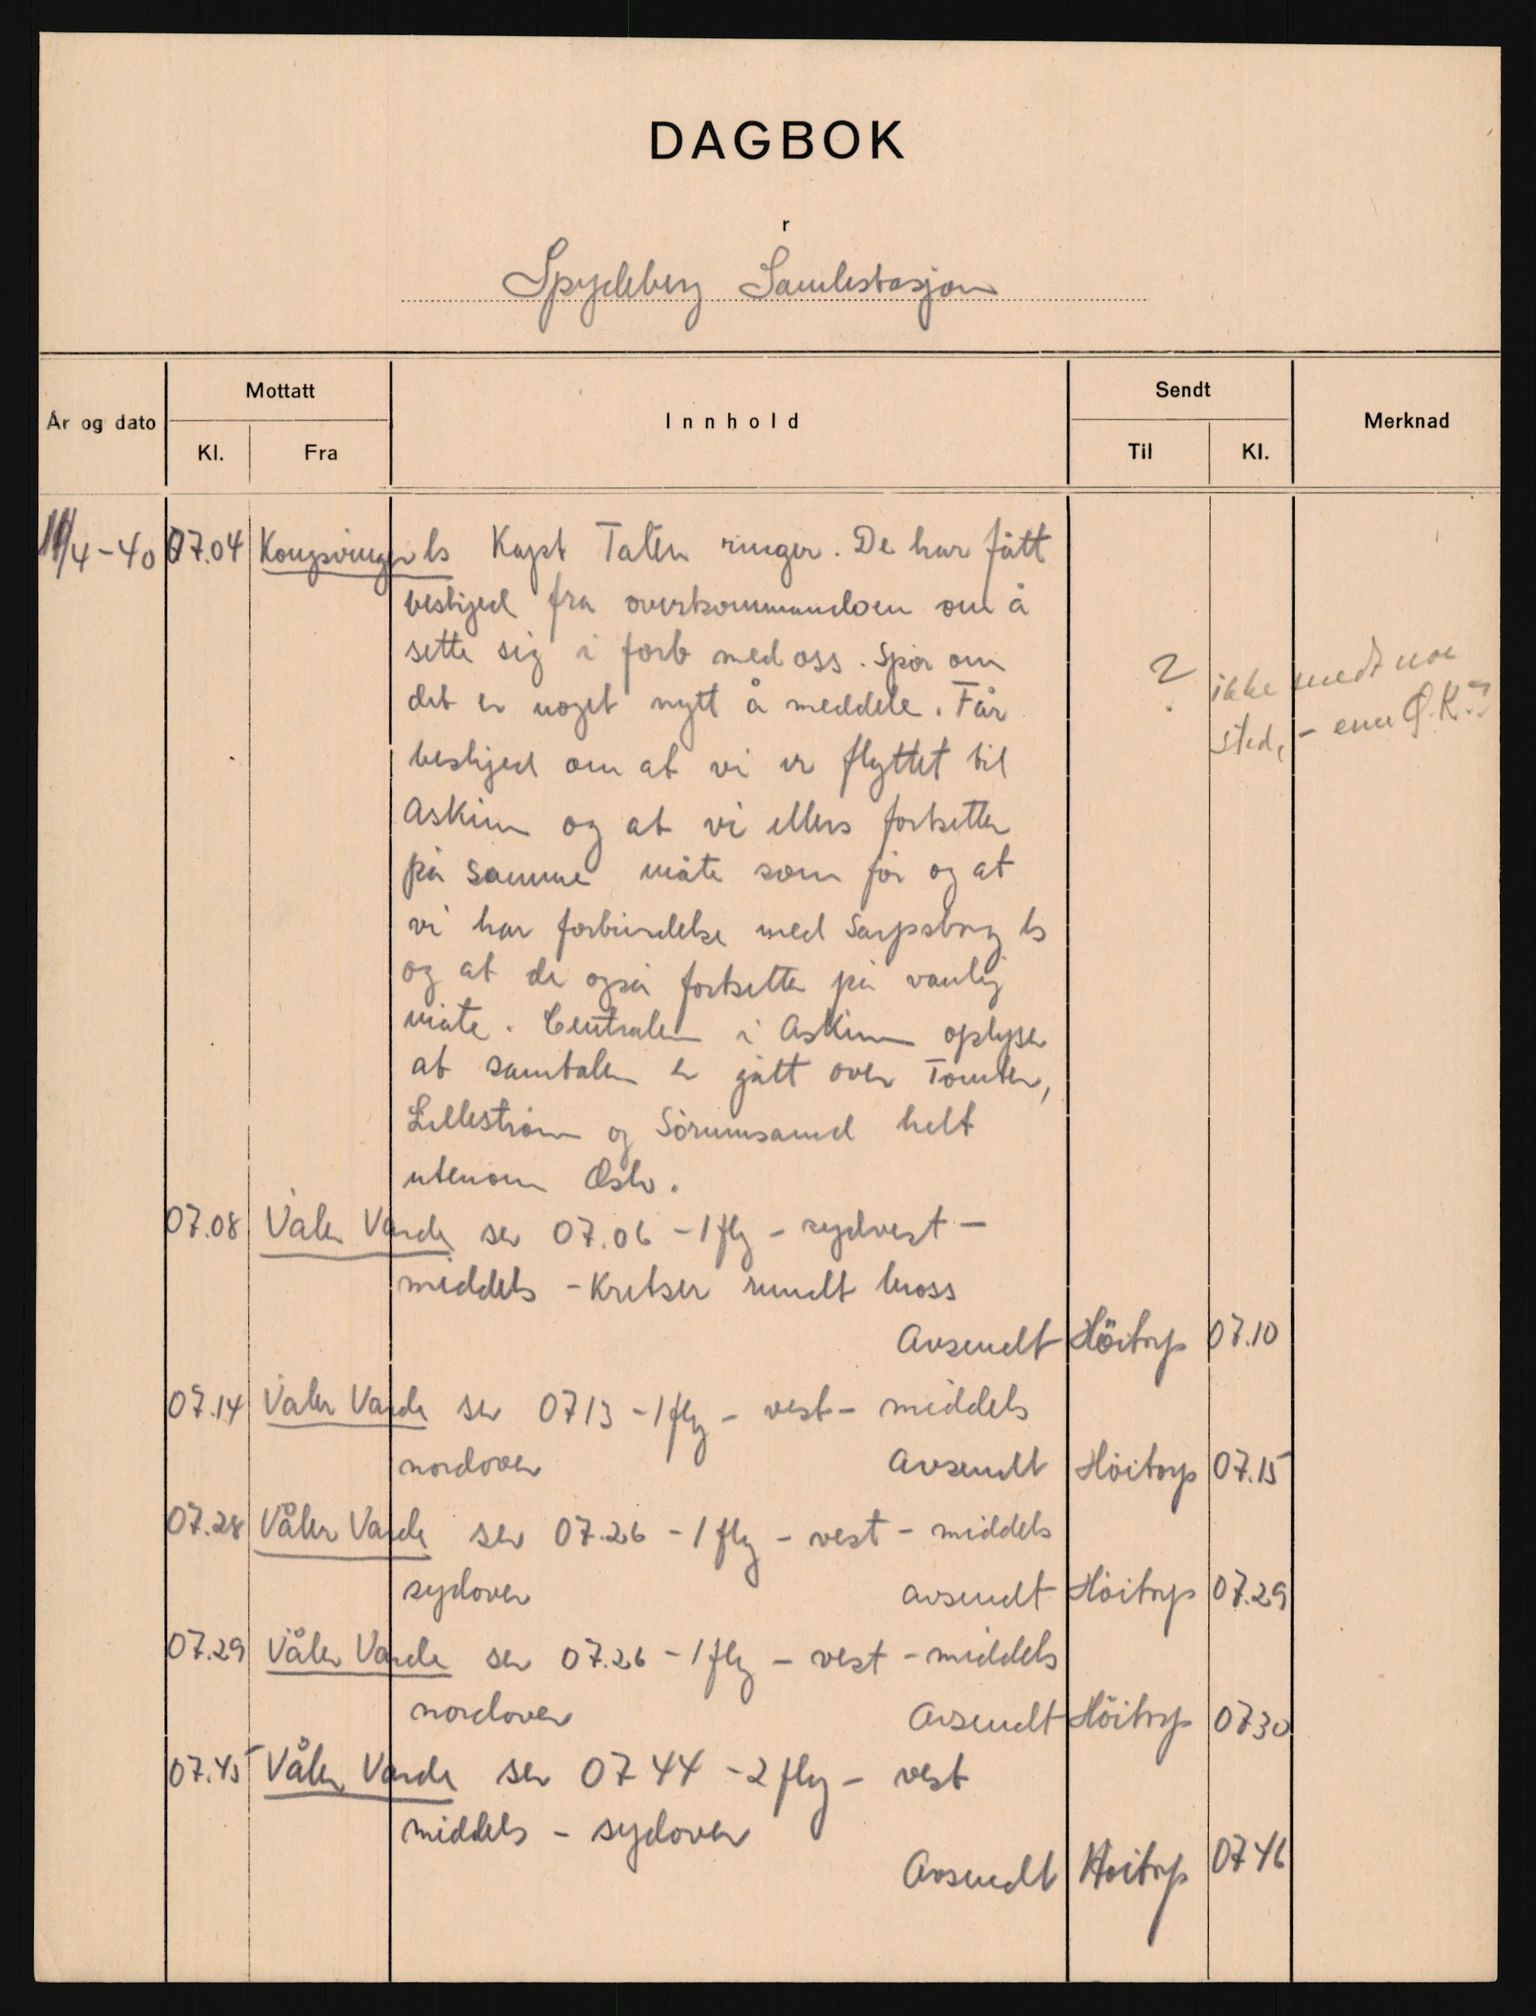 DAGBOK
r
Spydeberg Samlestasjon
År og dato
Mottatt
Kl.
Fra
Innhold
Sendt
Til
Kl.
Merknad
/4-40 07.04 Kongsvinger ls Kapt ringer. De har fått
beskjed fra overkommandoen om å
sette sig i forb med oss. Spør om
det er noget nytt å meddele. Får
beskjed om at vi er flyttet til
Askim og at vi ellers fortsetter
på samme måte som før og at
vi har forbindelse med Sarpsborg ls
og at de også fortsetter på vanlig
måte. Centralen i Askim oplyser
at samtalen er gått over Tomter,
Lillestrøm og Sørumsand helt
utenom Oslo.
? ikke noe
sted, - enn Ø.K.?
07.08 Våler Varde ser 07.06 - 1 fly - sydvest -
middels - Kretser rundt Moss
Avsendt Höitorp 07.10
07.14 Våler Varde ser 0713 - 1 fly - vest - middels
nordover Avsendt Höitorp 07.15
07.28 Våler Varde ser 07.26 - 1 fly - vest - middels
sydover avsendt Höitorp 07.29
07.29 Våler Varde ser 07.26 - 1 fly - vest - middels
nordover Avsendt Höitorp 0730
07.45 Våler Varde ser 0744 - 2 fly - vest
middels - sydover
Avsendt Höitorp 0746